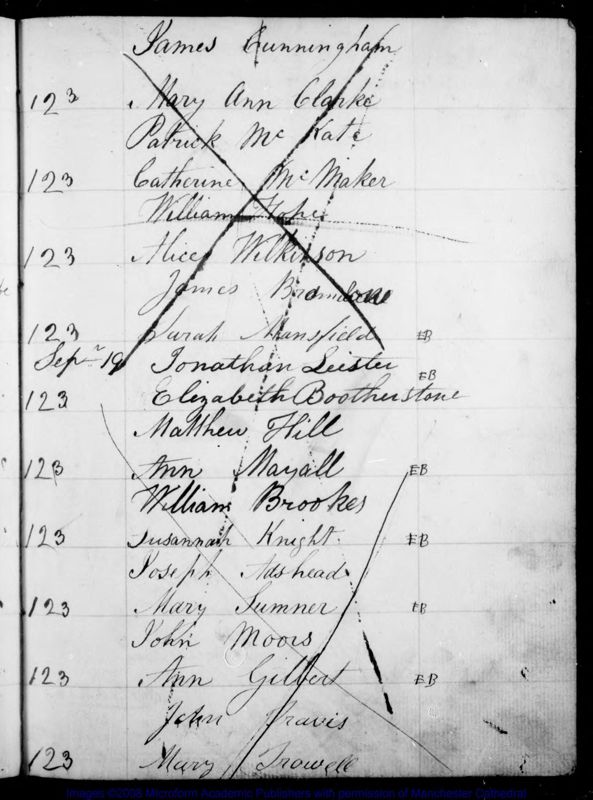 James Cunningham
123 Mary Ann Clarke
Patrick Mc Kate
123 Catherine Mc Maker
William Hope
123 Alice Wilkinson
James
123 Sarah Mansfield EB
Sepr 19 Jonathan Leister
123 Elizabeth Bootherstone EB
Matthew Hill
123 Ann Mayall EB
William Brookes
123 Susannah Knight EB
Joseph Adshead
123 Mary Sumner EB
John Moors
123 Ann Gilbert EB
John Travis
123 Mary Trowell
Images ©2008 Microform Academic Publishers with permission of Manchester Cathedral